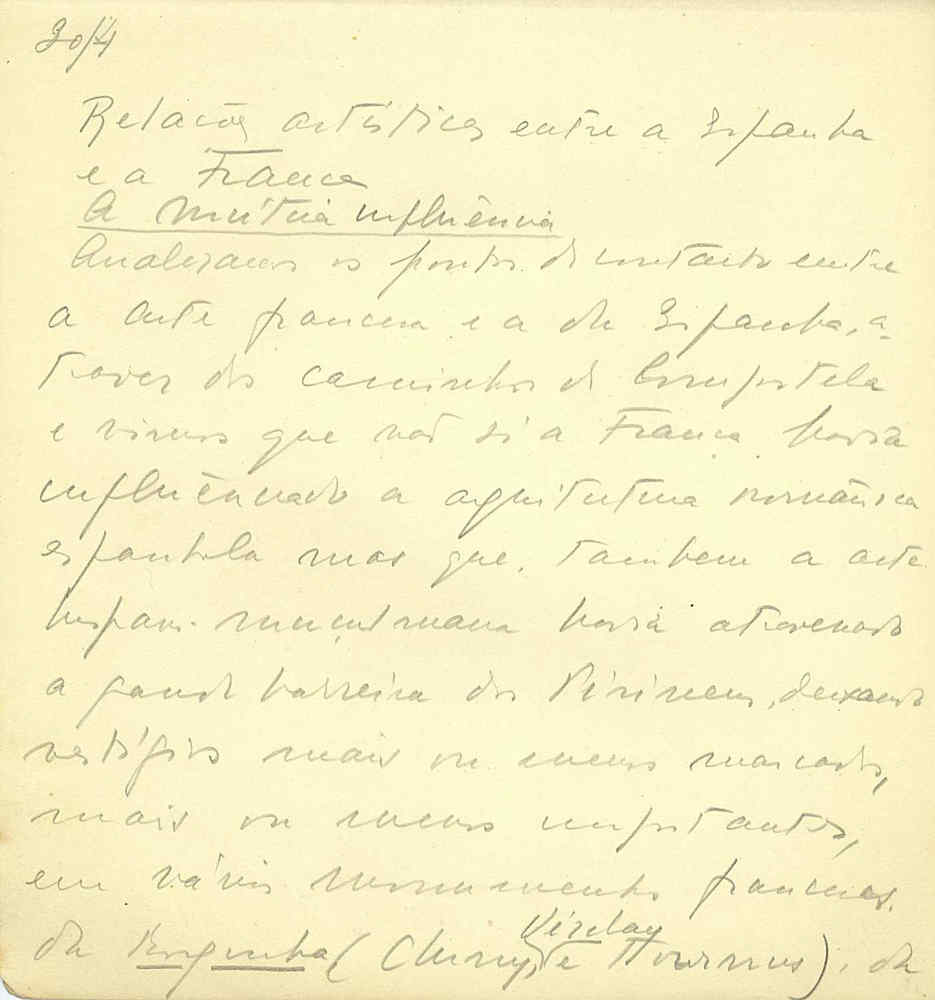 30/4
Relações artísticas entre a Espanha
e a França
A mútua influência
Analisamos os pontos de contacto entre
a arte francesa e a da Espanha, a-
traves dos caminhos de Compostela
e vimos que não só a França havia
influênciado a arquitectura românica
espanhola mas que, tambem a arte
hispano-muçulmana havia atravessado
a grande barreira dos Pirineus, deixando
vestígios mais ou menos marcados,
mais ou menos importantes,
em vários monumentos franceses.
Vézelay
da Borgonha (Cluny, e Tournus), da